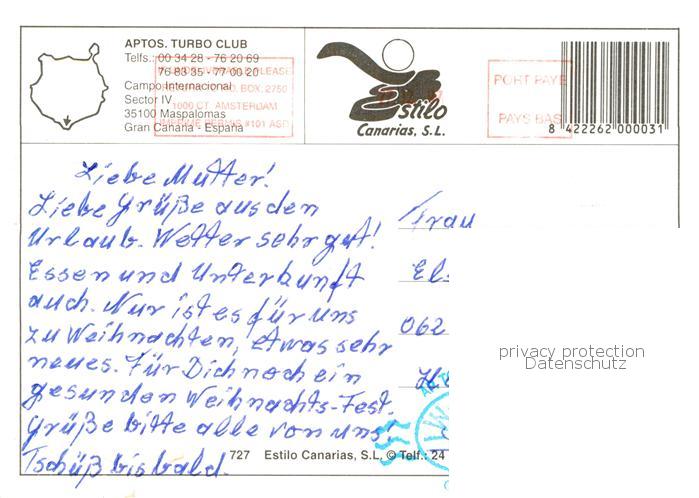 APTOS. TURBO CLUB
Telfs.: 00 34 28 - 76 20 69
76 83 35 - 77 00 20
Campo Internacional
Sector IV
35100 Maspalomas
Gran Canaria - España
PLEASE
P.O. BOX. 2750
1000 CT. AMSTERDAM
Estilo
Canarias, S.L.
PORT PAYE
PAYS BAS
8 422262 000031
Liebe Mutter!
Liebe Grüße aus den
Urlaub. Wetter sehr gut!
Essen und Unterkunft
auch. Nur ist es für uns
zu Weihnachten, etwas sehr
neues. Für Dich noch ein
gesunden Weihnachts-Fest.
Grüße bitte alle von uns!
Tschüß bis bald.
Frau
El
062
privacy protection
Datenschutz
727 Estilo Canarias, S.L. © Telf.: 24